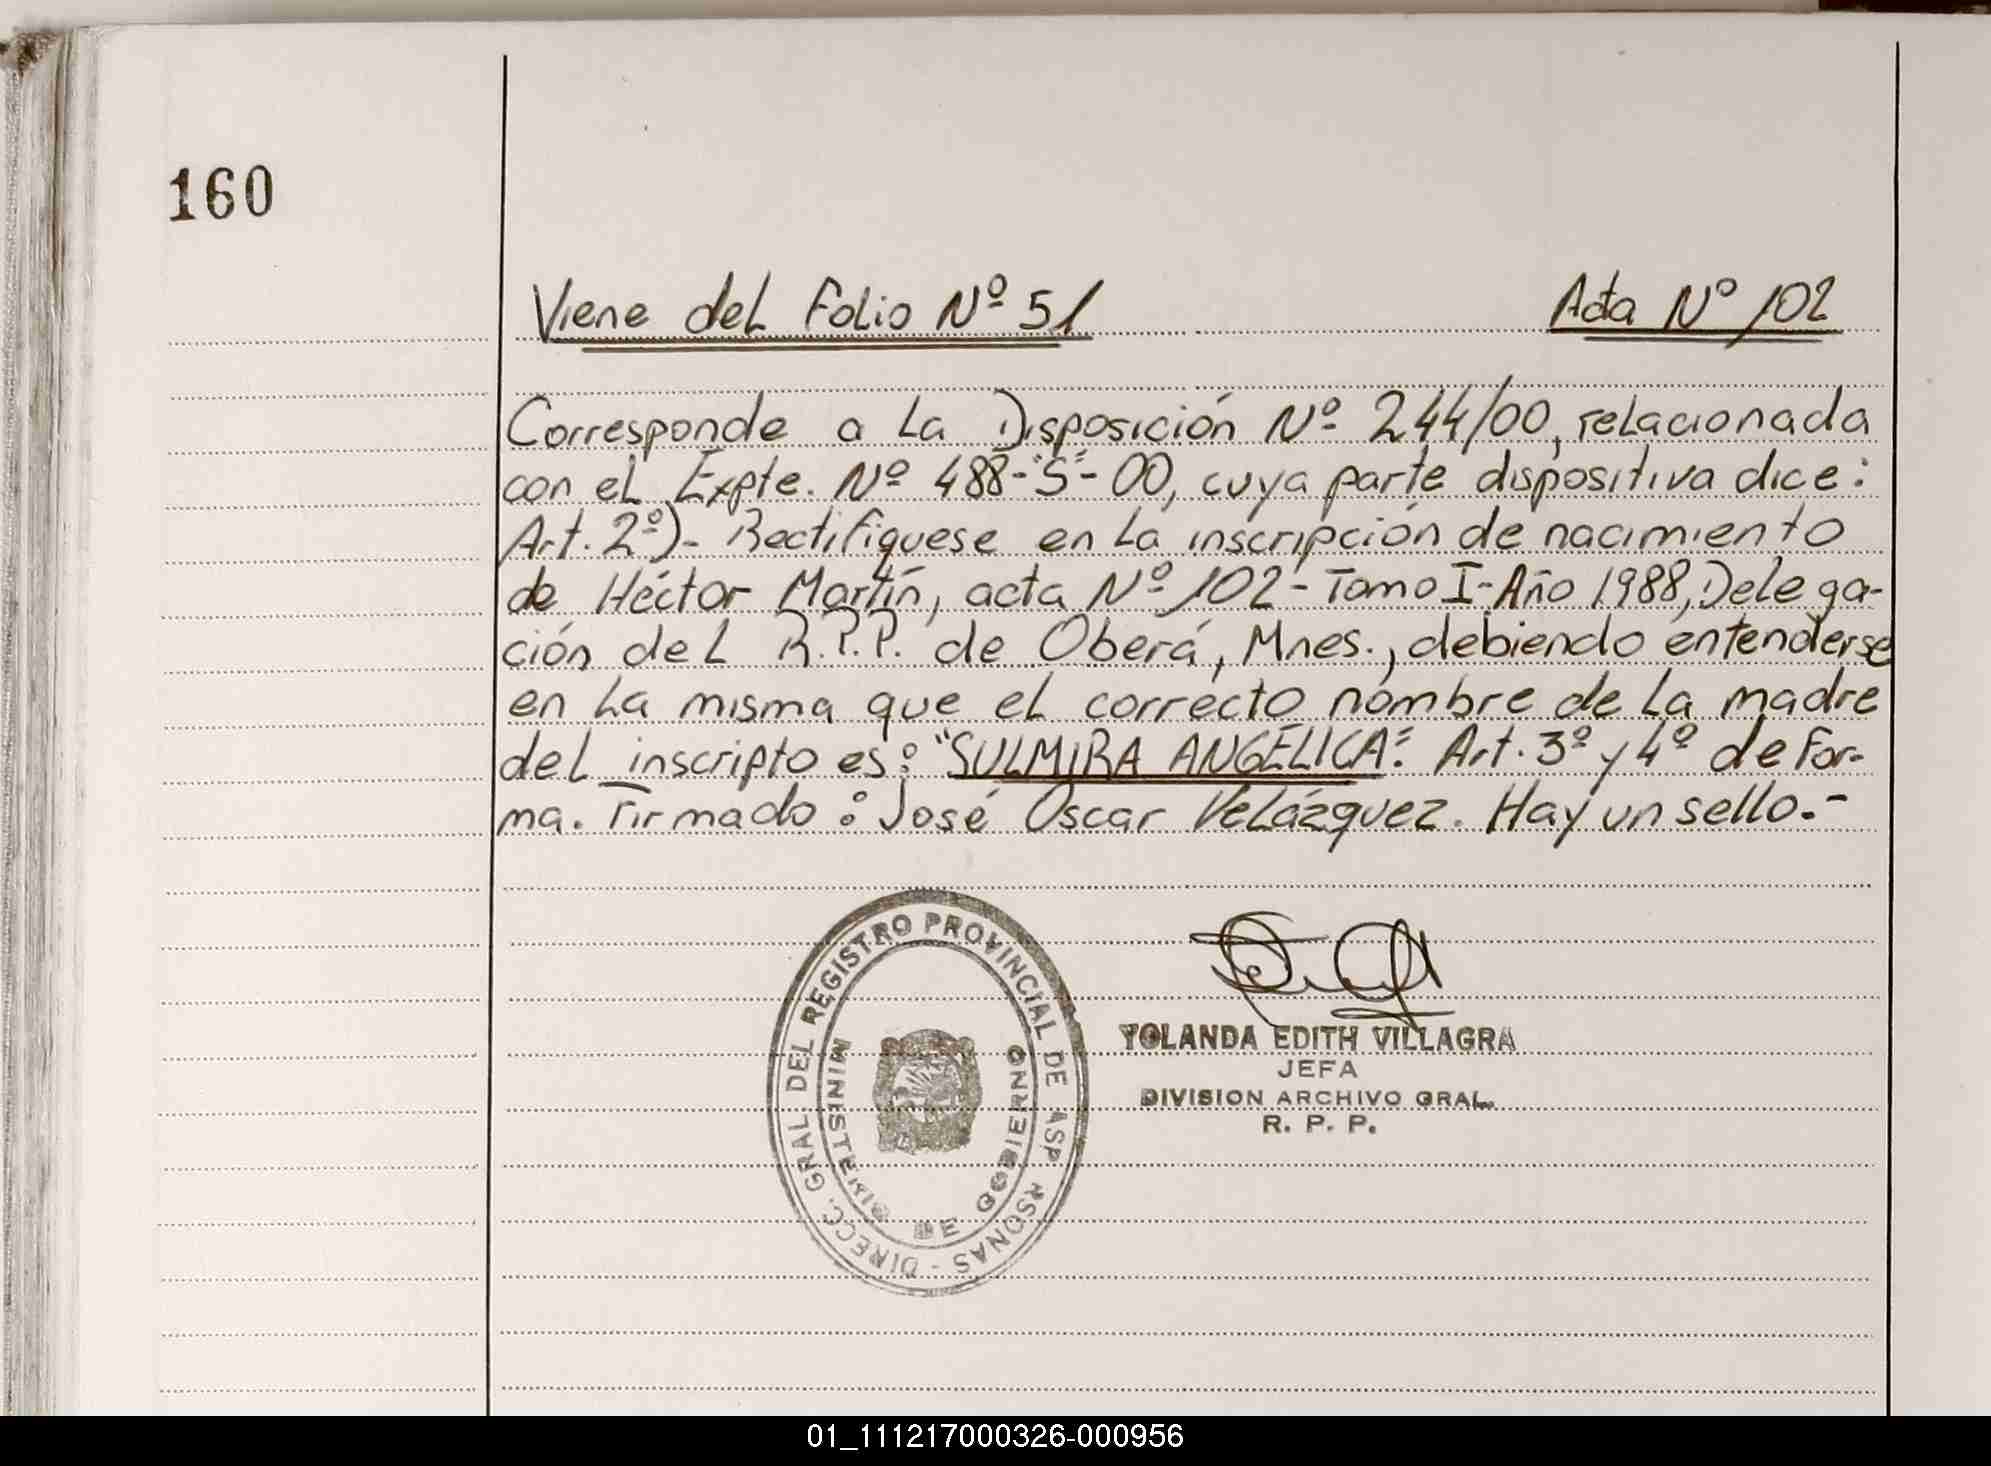 160
Viene del Folio Nº 51 Acta Nº 102
Corresponde a la Disposición Nº 244/00, relacionada
con el Expte. Nº 488-"S"-00, cuya parte dispositiva dice:
Art. 2º)- Rectifíquese en la inscripción de nacimiento
de Héctor Martín, acta Nº 102-Tomo I-Año 1988, Delega-
ción del R.P.P. de Oberá, Mnes., debiendo entenderse
en la misma que el correcto nombre de la madre
del inscripto es: "SULMIRA ANGÉLICA". Art. 3º y 4º de for-
ma. Firmado: José Oscar Velázquez. Hay un sello.-
DIRECC. GRAL DEL REGISTRO PROVINCIAL DE ASP RSONAS -
MINISTERIO DE GOBIERNO
YOLANDA EDITH VILLAGRA
JEFA
DIVISION ARCHIVO GRAL.
R. P. P.
01_111217000326-000956